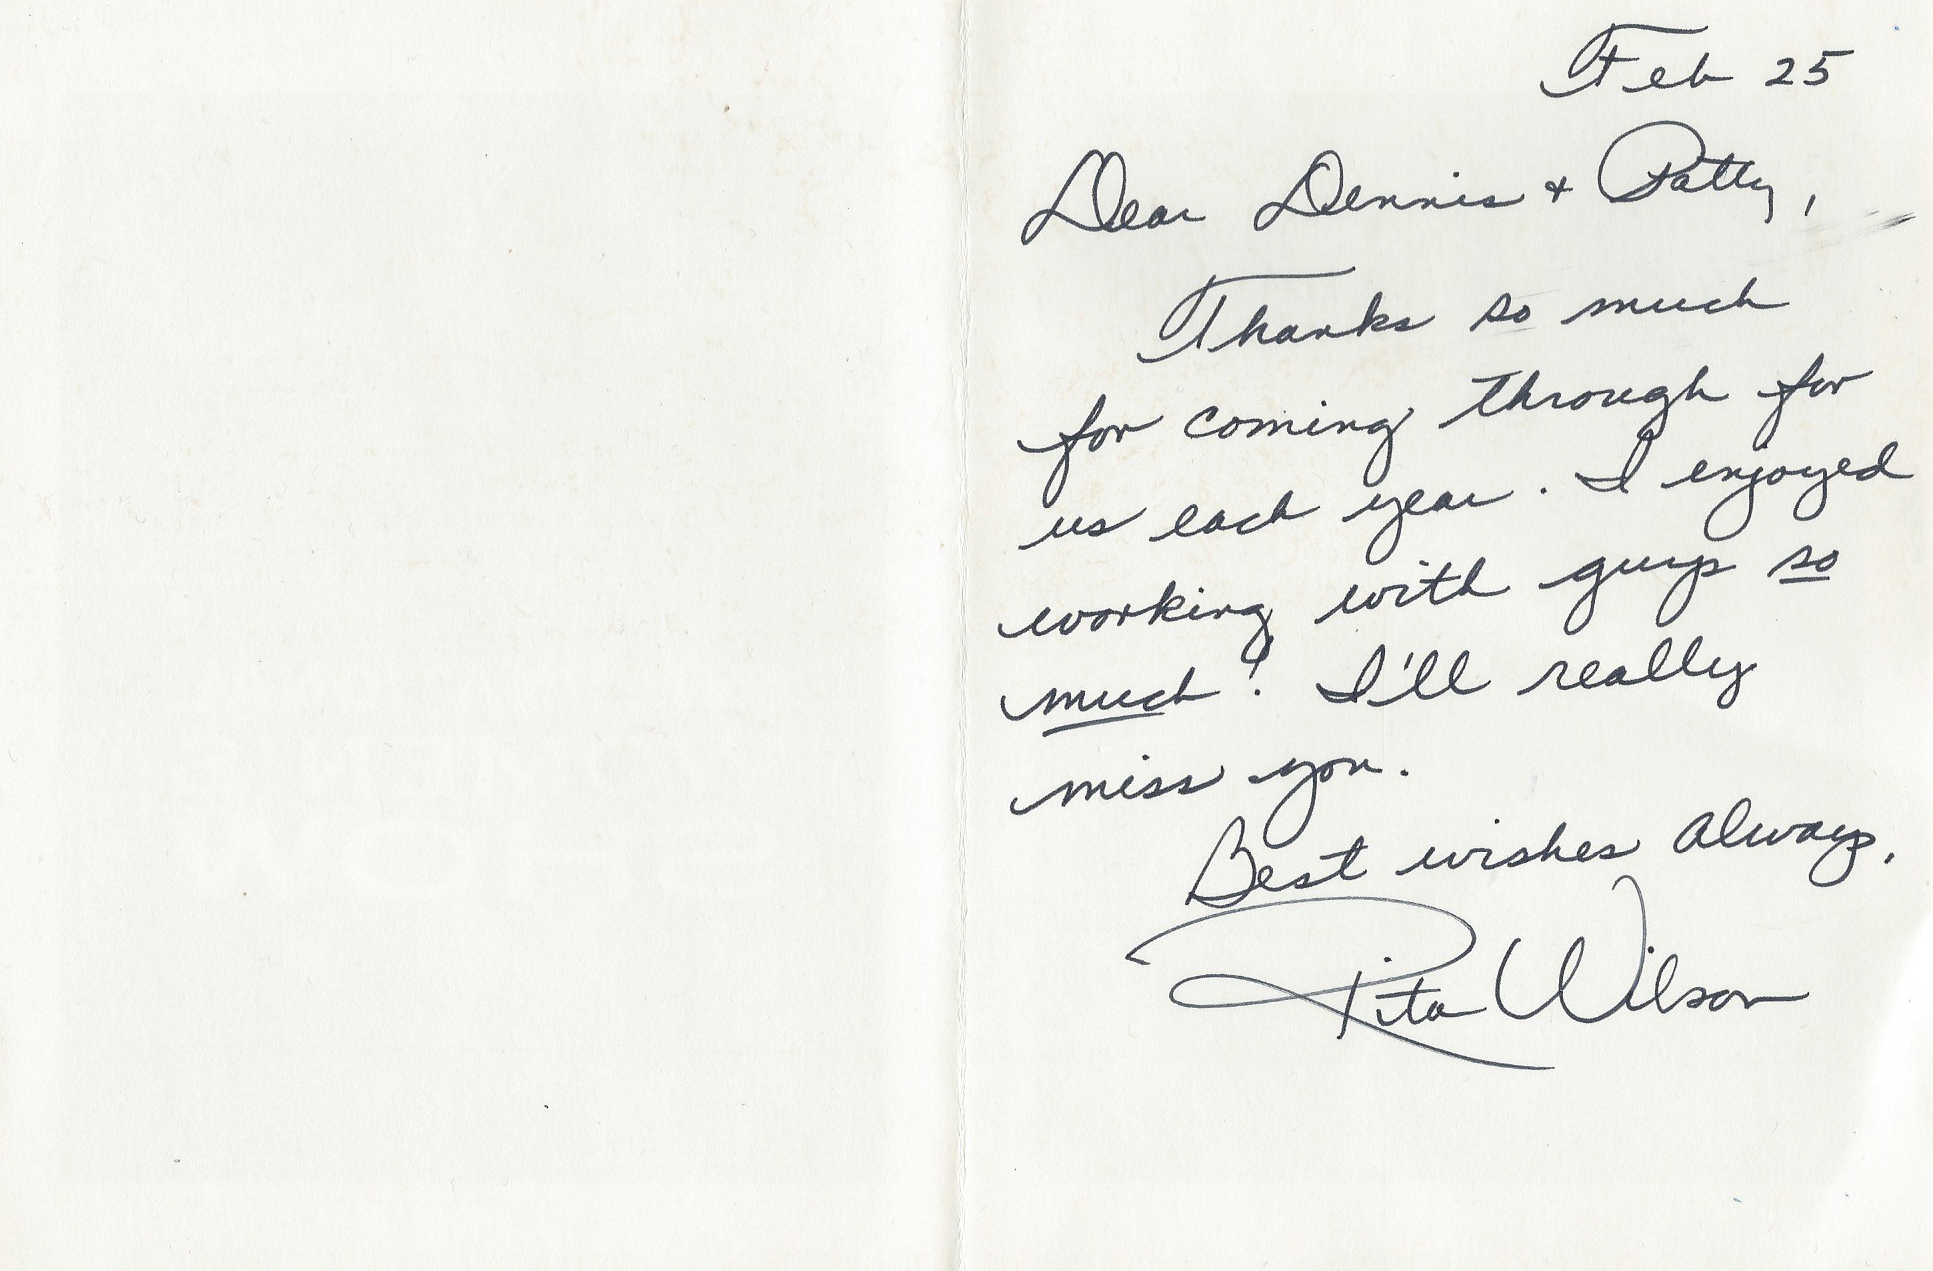 Feb 25
Dear Dennis + Patty,
Thanks so much
for coming through for
us each year. I enjoyed
working with guys so
much! I'll really
miss you.
Best wishes always,
Rita Wilson